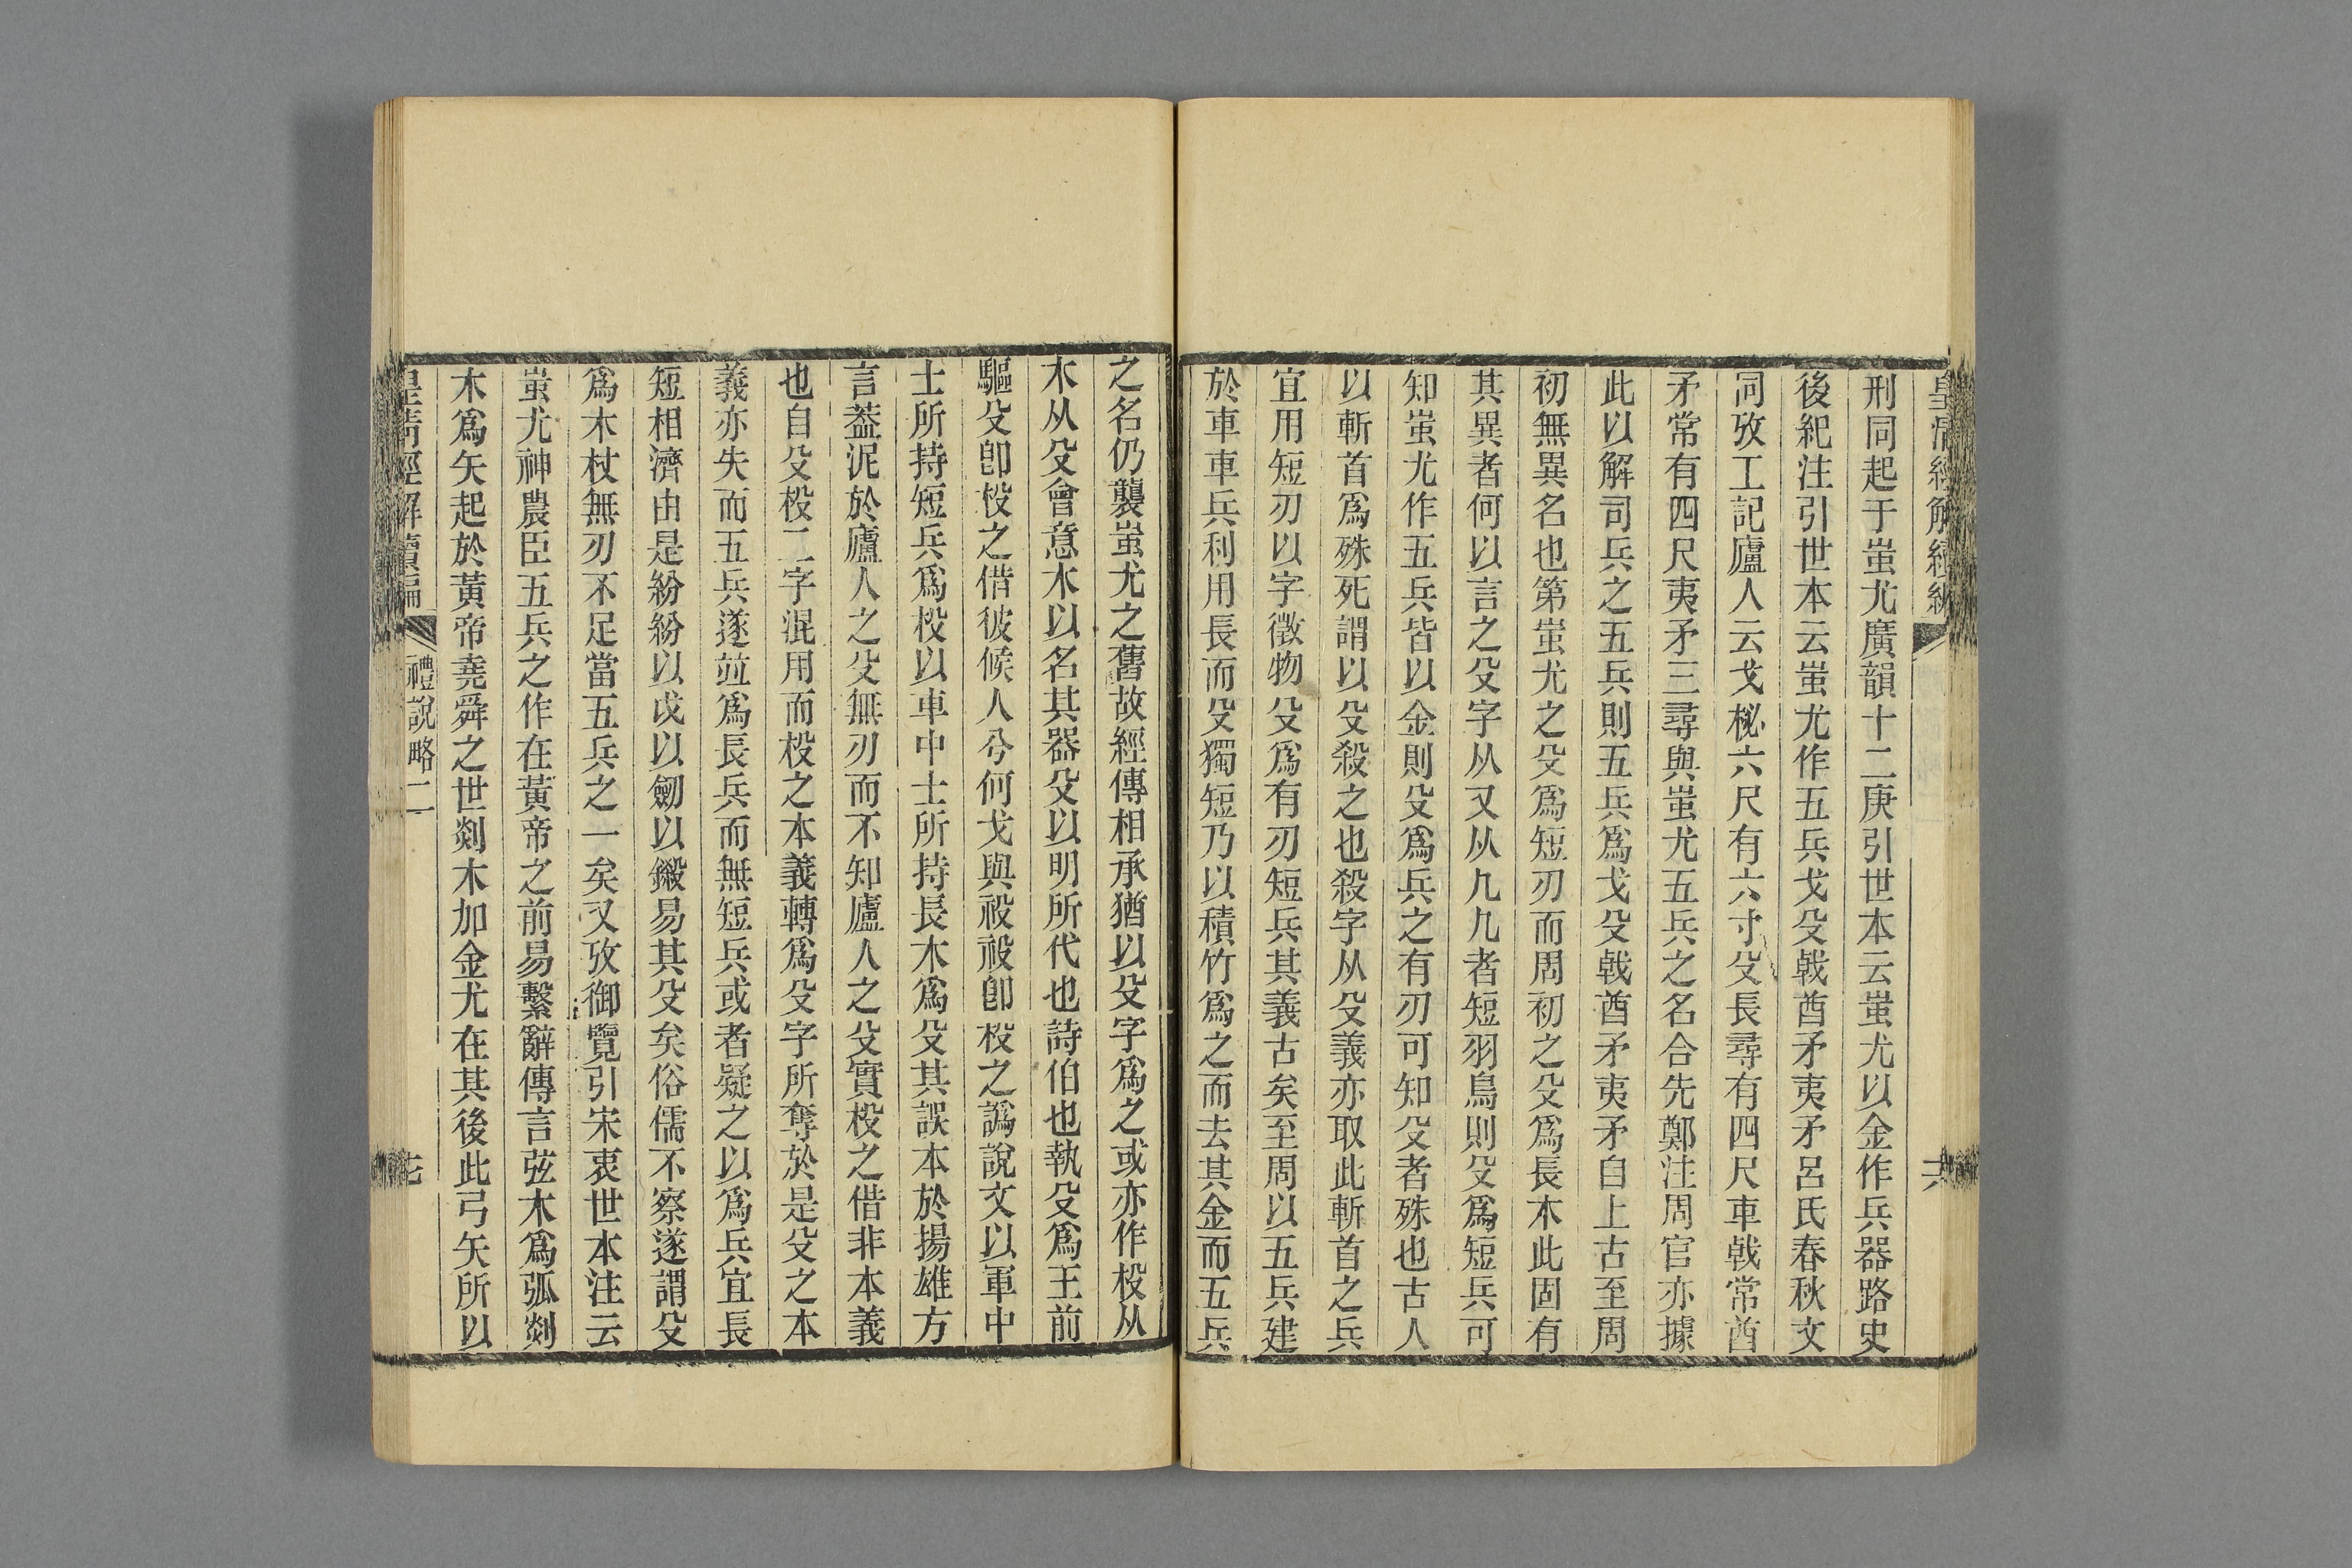 皇清經解續編
六
刑同起于蚩尤廣韻十二庚引世本云蚩尤以金作兵器路史
後紀注引世本云蚩尤作五兵戈殳戟酋矛夷矛呂氏春秋文
同攷工記廬人云戈柲六尺有六寸殳長尋有四尺車戟常酋
矛常有四尺夷矛三尋與蚩尤五兵之名合先鄭注周官亦據
此以解司兵之五兵則五兵爲戈殳戟酋矛夷矛自上古至周
初無異名也第蚩尤之殳爲短刃而周初之殳爲長木此固有
其異者何以言之殳字从又从几几者短羽鳥則殳爲短兵可
知蚩尤作五兵皆以金則殳爲兵之有刃可知殳者殊也古人
以斬首爲殊死謂以殳殺之也殺字从殳義亦取此斬首之兵
宜用短刃以字徵物殳爲有刃短兵其義古矣至周以五兵建
於車車兵利用長而殳獨短乃以積竹爲之而去其金而五兵
之名仍襲蚩尤之舊故經傳相承猶以殳字爲之或亦作杸从
木从殳會意木以名其器殳以明所代也詩伯也執殳爲王前
驅殳卽杸之借彼候人兮何戈與祋祋卽杸之譌說文以軍中
士所持短兵爲杸以車中士所持長木爲殳其誤本於揚雄方
言葢泥於廬人之殳無刃而不知廬人之殳實杸之借非本義
也自殳杸二字混用而杸之本義轉爲殳字所奪於是殳之本
義亦失而五兵遂竝爲長兵而無短兵或者疑之以爲兵宜長
短相濟由是紛紛以戉以劒以鎩易其殳矣俗儒不察遂謂殳
爲木杖無刃不足當五兵之一矣又攷御覽引宋衷世本注云
蚩尤神農臣五兵之作在黃帝之前易繫辭傳言弦木爲弧剡
木爲矢起於黃帝堯舜之世剡木加金尤在其後此弓矢所以
皇清經解續編
禮說略二